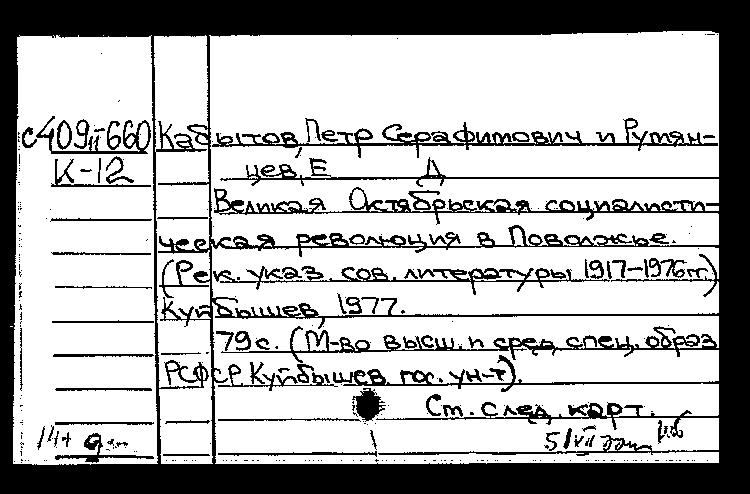 с409II660 Кабытов, Петр Серафимович и Румян-
К-12 цев, Е Д
Великая Октябрьская социалисти-
ческая революция в Поволжье.
(Рек. указ. сов. литературы 1917-1976гг.)
Куйбышев, 1977.
79с. (М-во высш. и сред. спец. образ
РСФСР. Куйбышев. гос. ун-т).
См. след. карт.
14+